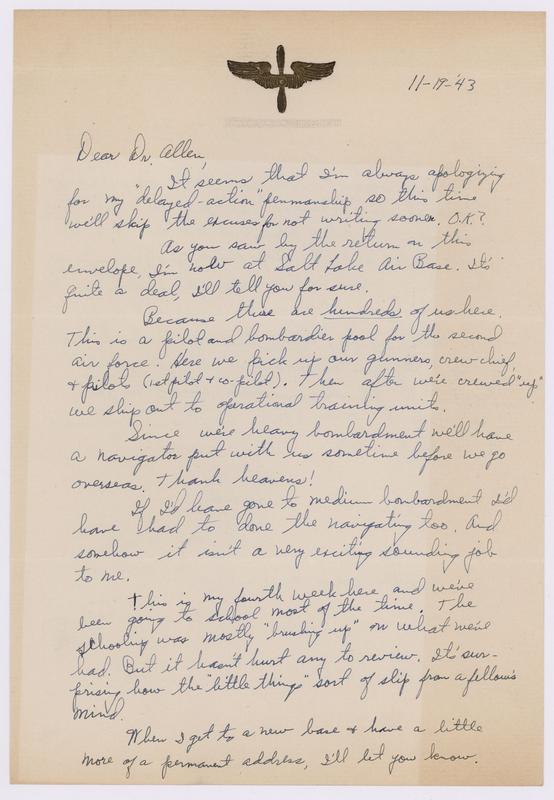 11-19-'43
Dear Dr. Allen,
It seems that I'm always apologizing
for my "delayed-action" penmanship so this time
we'll skip the excuses for not writing sooner. O.K.?
As you saw by the return on this
envelope, I'm now at Salt Lake Air Base. It's
quite a deal, I'll tell you for sure.
Because there are hundreds of us here.
This is a pilot and bombardier pool for the second
air force. Here we pick up our gunners, crew chief,
& pilots (1st pilot & co-pilot). Then after we're crewed "up"
we ship out to operational training units.
Since we're heavy bombardment we'll have
a navigator put with us sometime before we go
overseas. Thank heavens!
If I'd have gone to medium bombardment I'd
have had to done the navigating too. And
somehow it isn't a very exciting sounding job
to me.
This is my fourth week here and we've
been going to school most of the time. The
schooling was mostly "brushing up" on what we've
had. But it hasn't hurt any to review. It's sur-
prising how the "little things" sort of slip from a fellow's
mind.
When I get to a new base & have a little
more of a permanent address, I'll let you know.